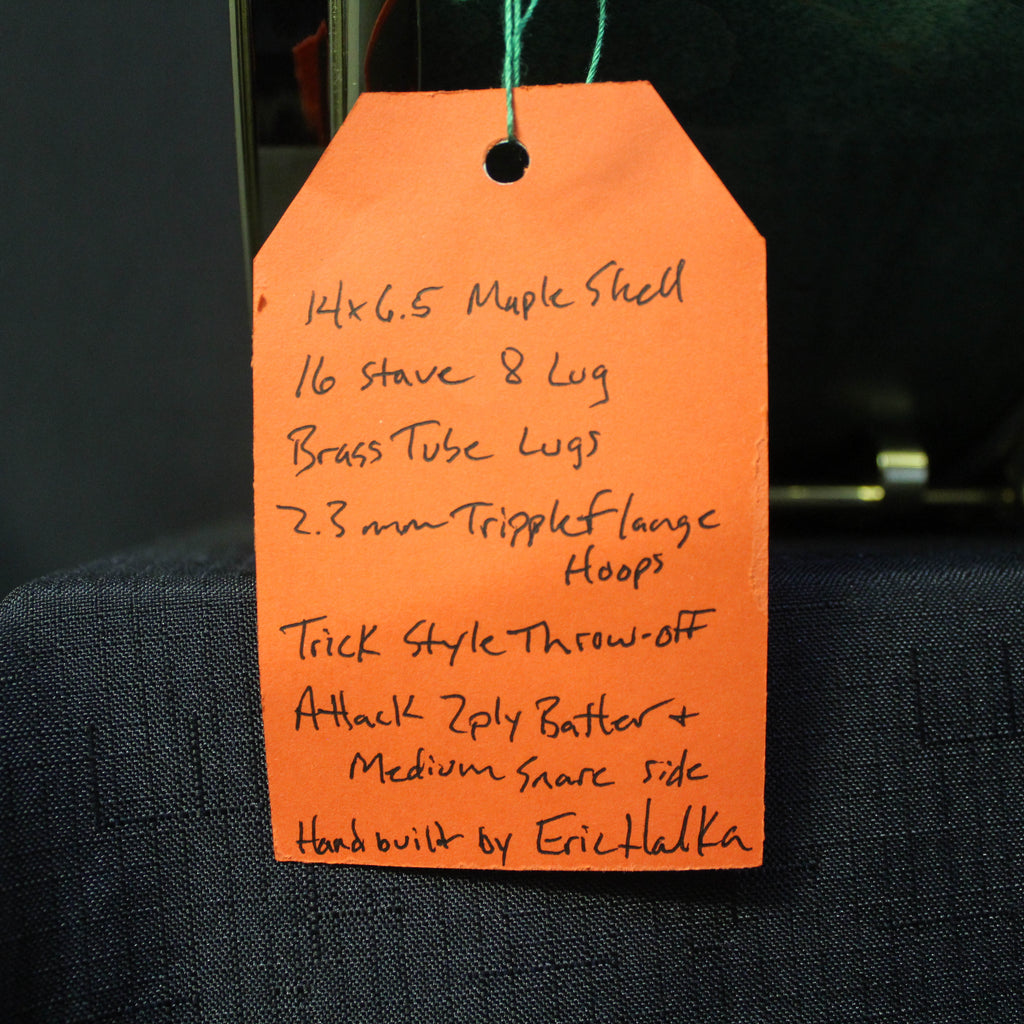 14x6.5 Maple Shell
16 stave 8 Lug
Brass Tube Lugs
2.3mm Tripple Flange
Hoops
Trick Style Throw-off
Attack 2ply Batter +
Medium Snare side
Hand built by Eric Halka